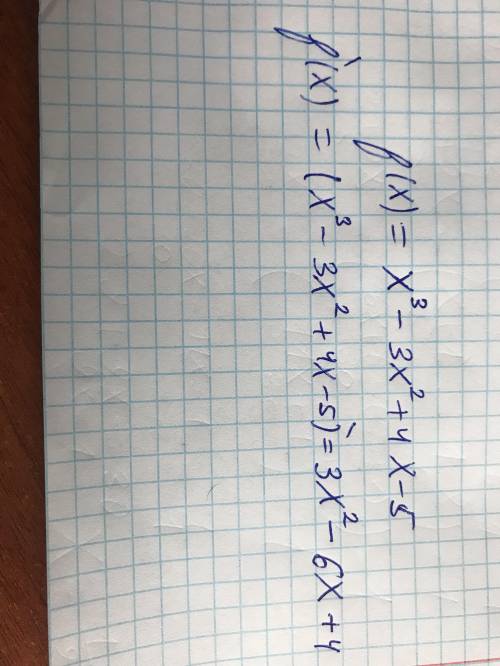 f(x) = x³ - 3x² + 4x - 5
f'(x) = (x³ - 3x² + 4x - 5)' = 3x² - 6x + 4